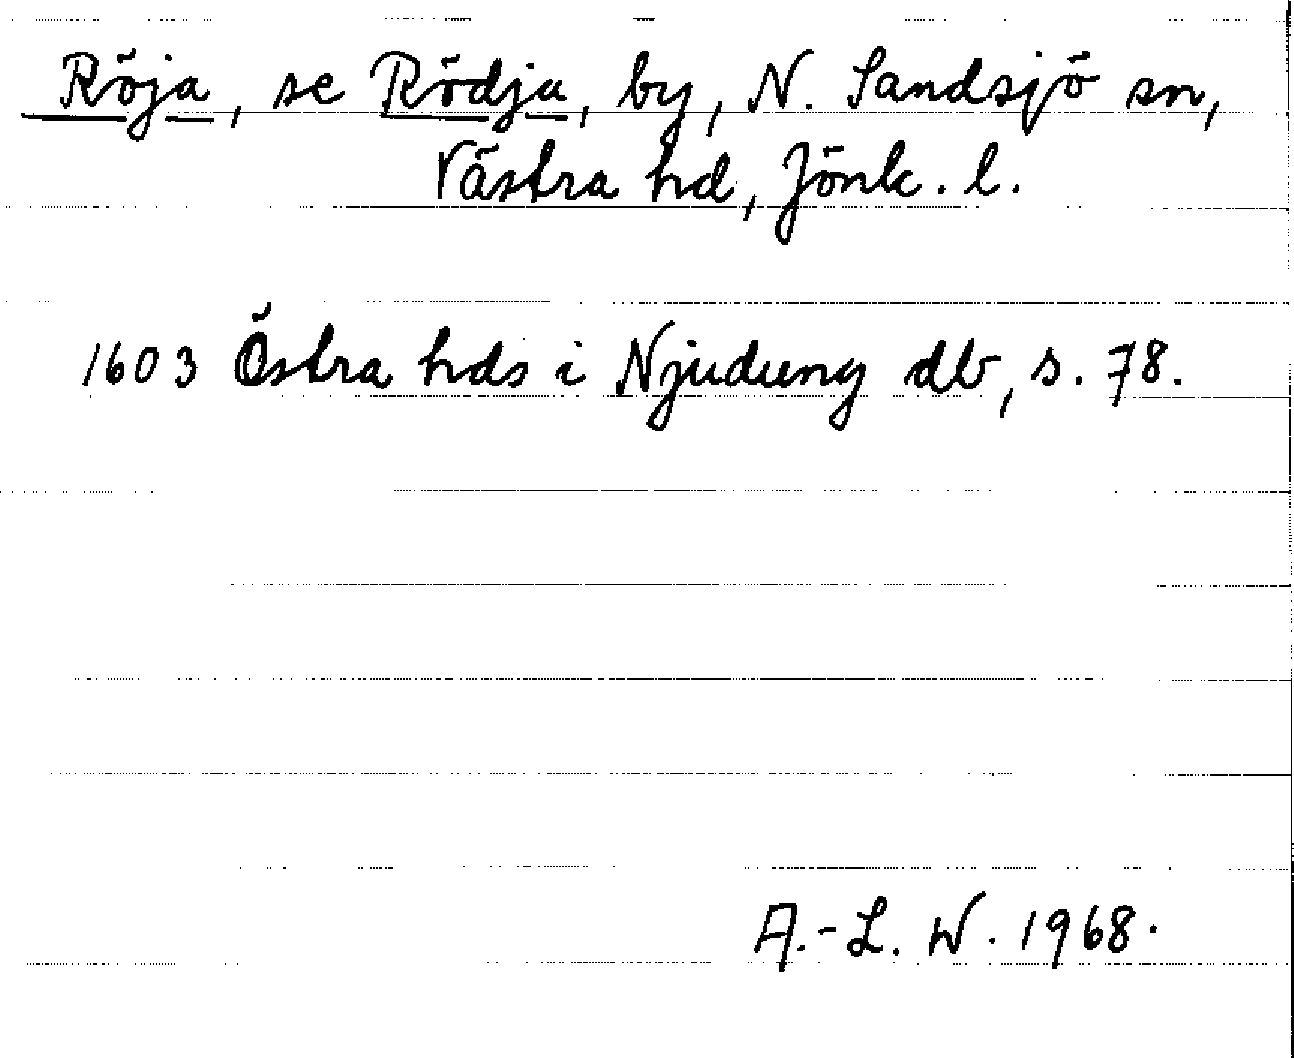 Röja, se Rödja, by, N. Sandsjö sn,
Västra hd, Jönk. l.
1603 Östra hds i Njudung db, s. 78.
A.-L. W. 1968.